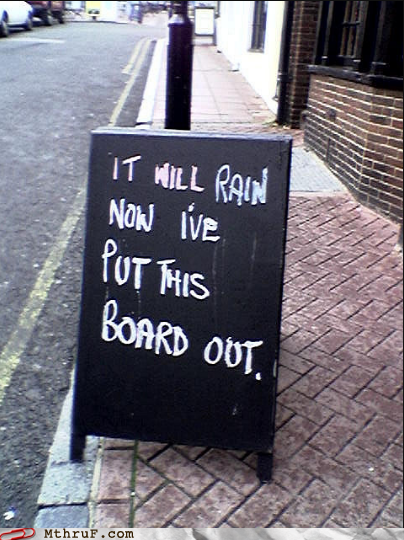 IT WILL RAIN
NOW I'VE
PUT THIS
BOARD OUT.
MthruF.com